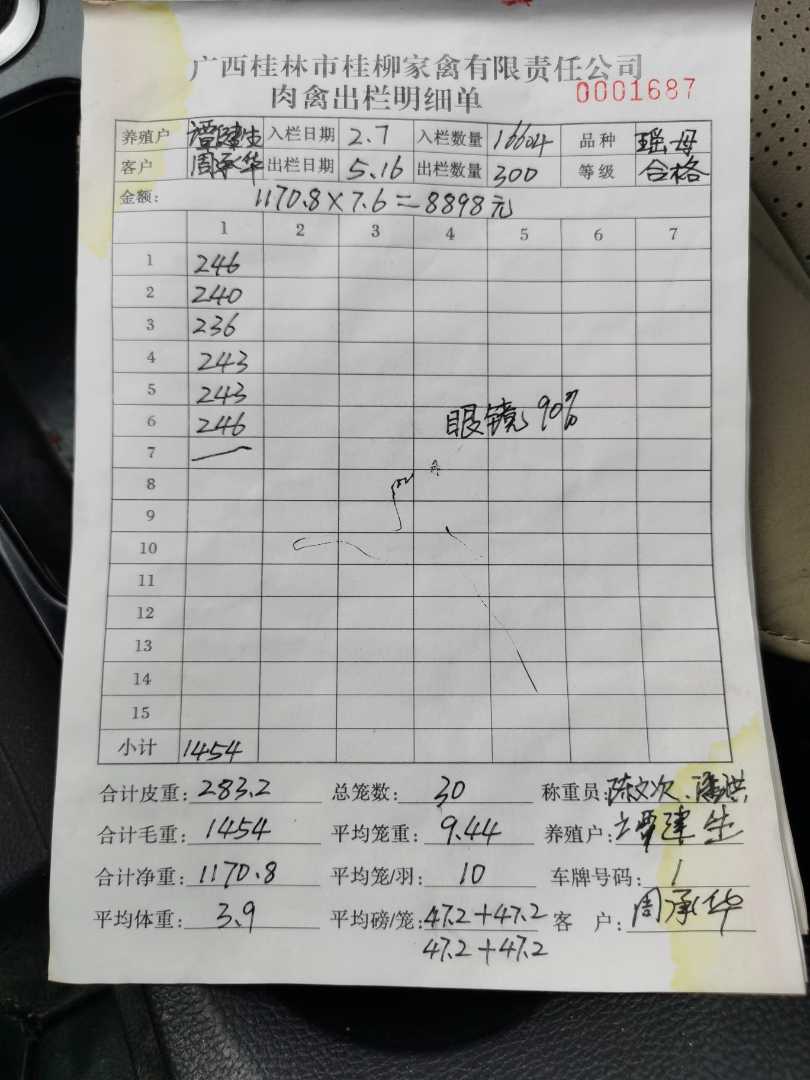 广西桂林市桂柳家禽有限责任公司
肉禽出栏明细单 0001687
养殖户 谭建生 入栏日期 2.7 入栏数量 16604 品种 瑶母
客户 周承华 出栏日期 5.16 出栏数量 300 等级 合格
金额: 1170.8×7.6=8898元
1 2 3 4 5 6 7
1 246
2 240
3 236
4 243
5 243
6 246 眼镜 90%
7
8
9
10
11
12
13
14
15
小计 1454
合计皮重: 283.2 总笼数: 30 称重员: 陈文次、潘洪
合计毛重: 1454 平均笼重: 9.44 养殖户: 谭建生
合计净重: 1170.8 平均笼/羽: 10 车牌号码: 1
平均体重: 3.9 平均磅/笼: 47.2+47.2 客 户: 周承华
47.2+47.2